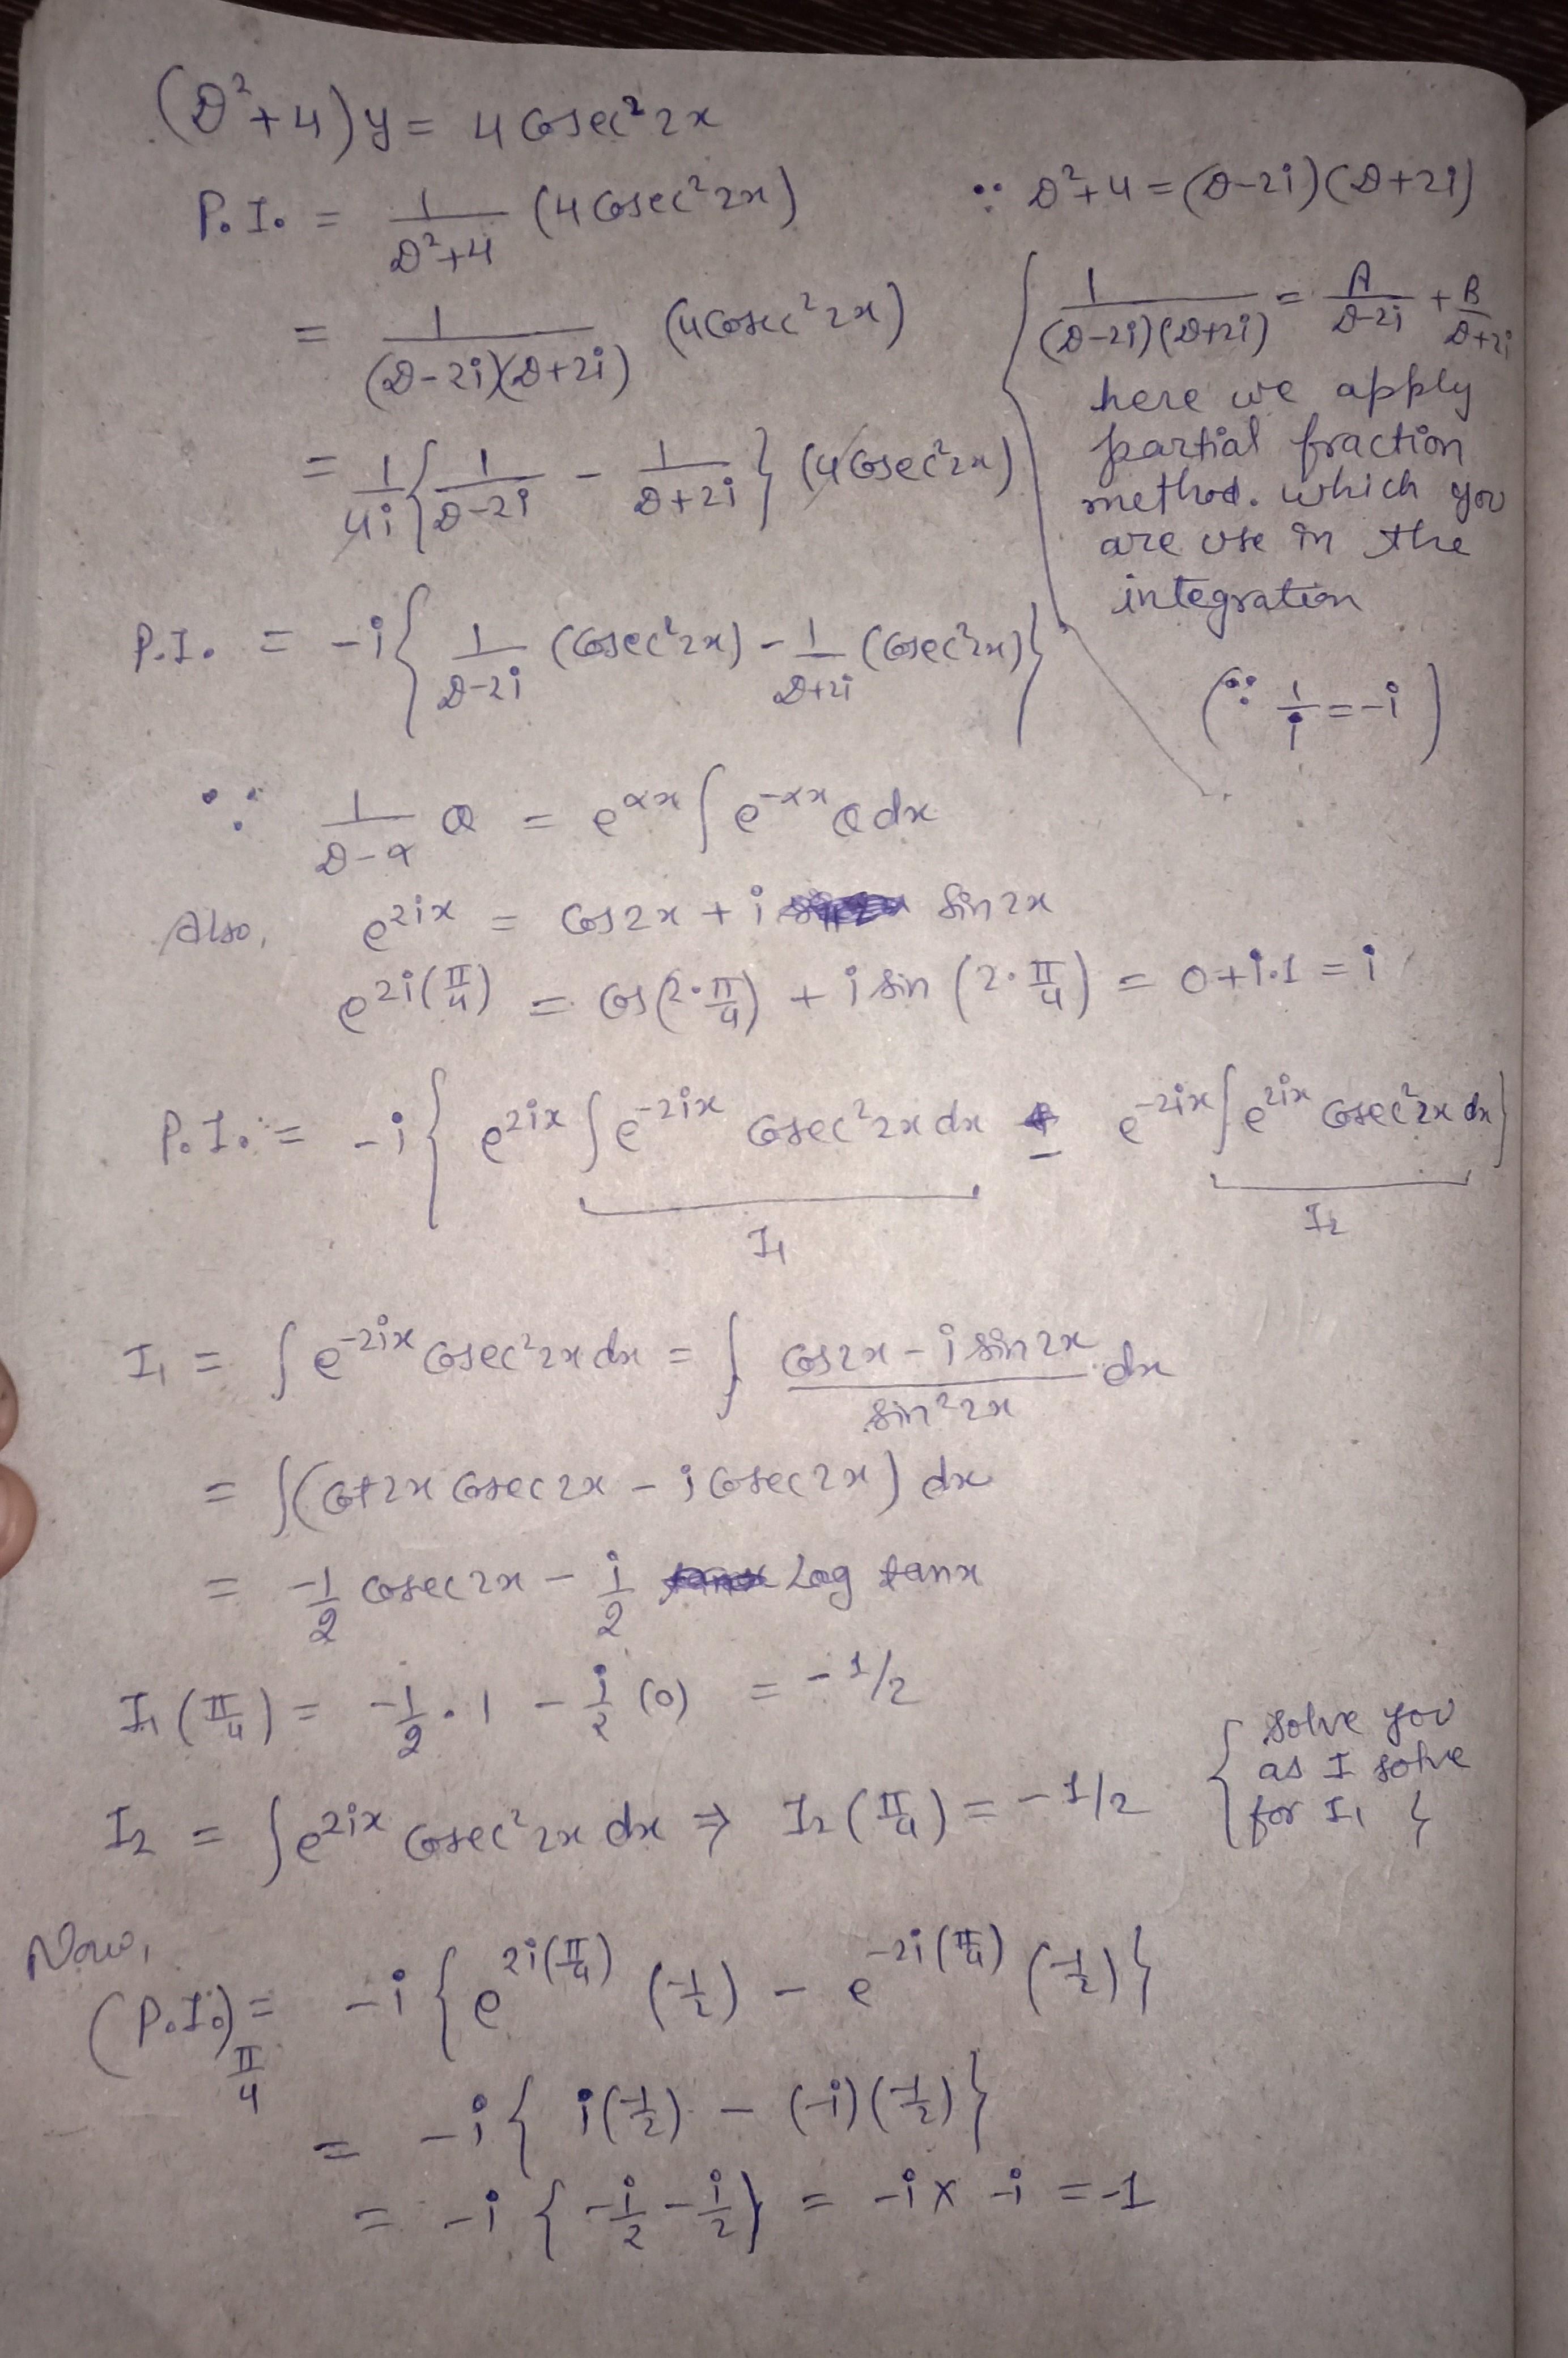 (D²+4)y = 4 cosec²2x
P.I. = 1/(D²+4) (4 cosec²2x)
∵ D²+4 = (D-2i)(D+2i)
= 1/((D-2i)(D+2i)) (4 cosec²2x)
{ 1/((D-2i)(D+2i)) = A/(D-2i) + B/(D+2i)
here we apply
partial fraction
method. which you
are use in the
integration
= 1/4i {1/(D-2i) - 1/(D+2i)} (4 cosec²2x)
P.I. = -i{ 1/(D-2i) (cosec²2x) - 1/(D+2i) (cosec²2x)}
(∵ 1/i = -i)
∵ 1/(D-α) Q = e^{αx} ∫ e^{-αx} Q dx
Also, e^{2ix} = cos2x + i sin2x
e^{2i(π/4)} = cos(2·π/4) + i sin(2·π/4) = 0+i.1 = i
P.I. = -i{ e^{2ix} ∫ e^{-2ix} cosec²2x dx - e^{-2ix} ∫ e^{2ix} cosec²2x dx}
I₁
I₂
I₁ = ∫ e^{-2ix} cosec²2x dx = ∫ (cos2x - i sin2x)/(sin²2x) dx
= ∫(cot2x cosec2x - i cosec2x) dx
= -1/2 cosec2x - i/2 Log tanx
I₁(π/4) = -1/2 . 1 - i/2 (0) = -1/2
I₂ = ∫ e^{2ix} cosec²2x dx ⇒ I₂(π/4) = -1/2
{ solve you
as I solve
for I₁ }
Now,
(P.I.)_{π/4} = -i { e^{2i(π/4)} (-1/2) - e^{-2i(π/4)} (-1/2)}
= -i{ i(-1/2) - (-i)(-1/2)}
= -i { -i/2 - i/2} = -i x -i = -1